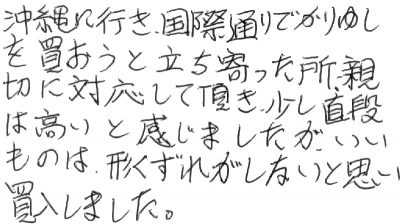 沖縄に行き、国際通りでかりゆし
を買おうと立ち寄った所、親
切に対応して頂き、少し直段
は高いと感じましたが、いい
ものは、形くずれがしないと思い
買入しました。